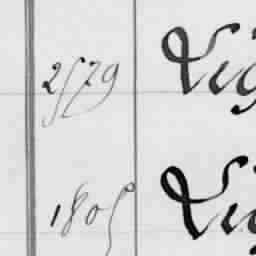 2579 Lig
1805 Lig